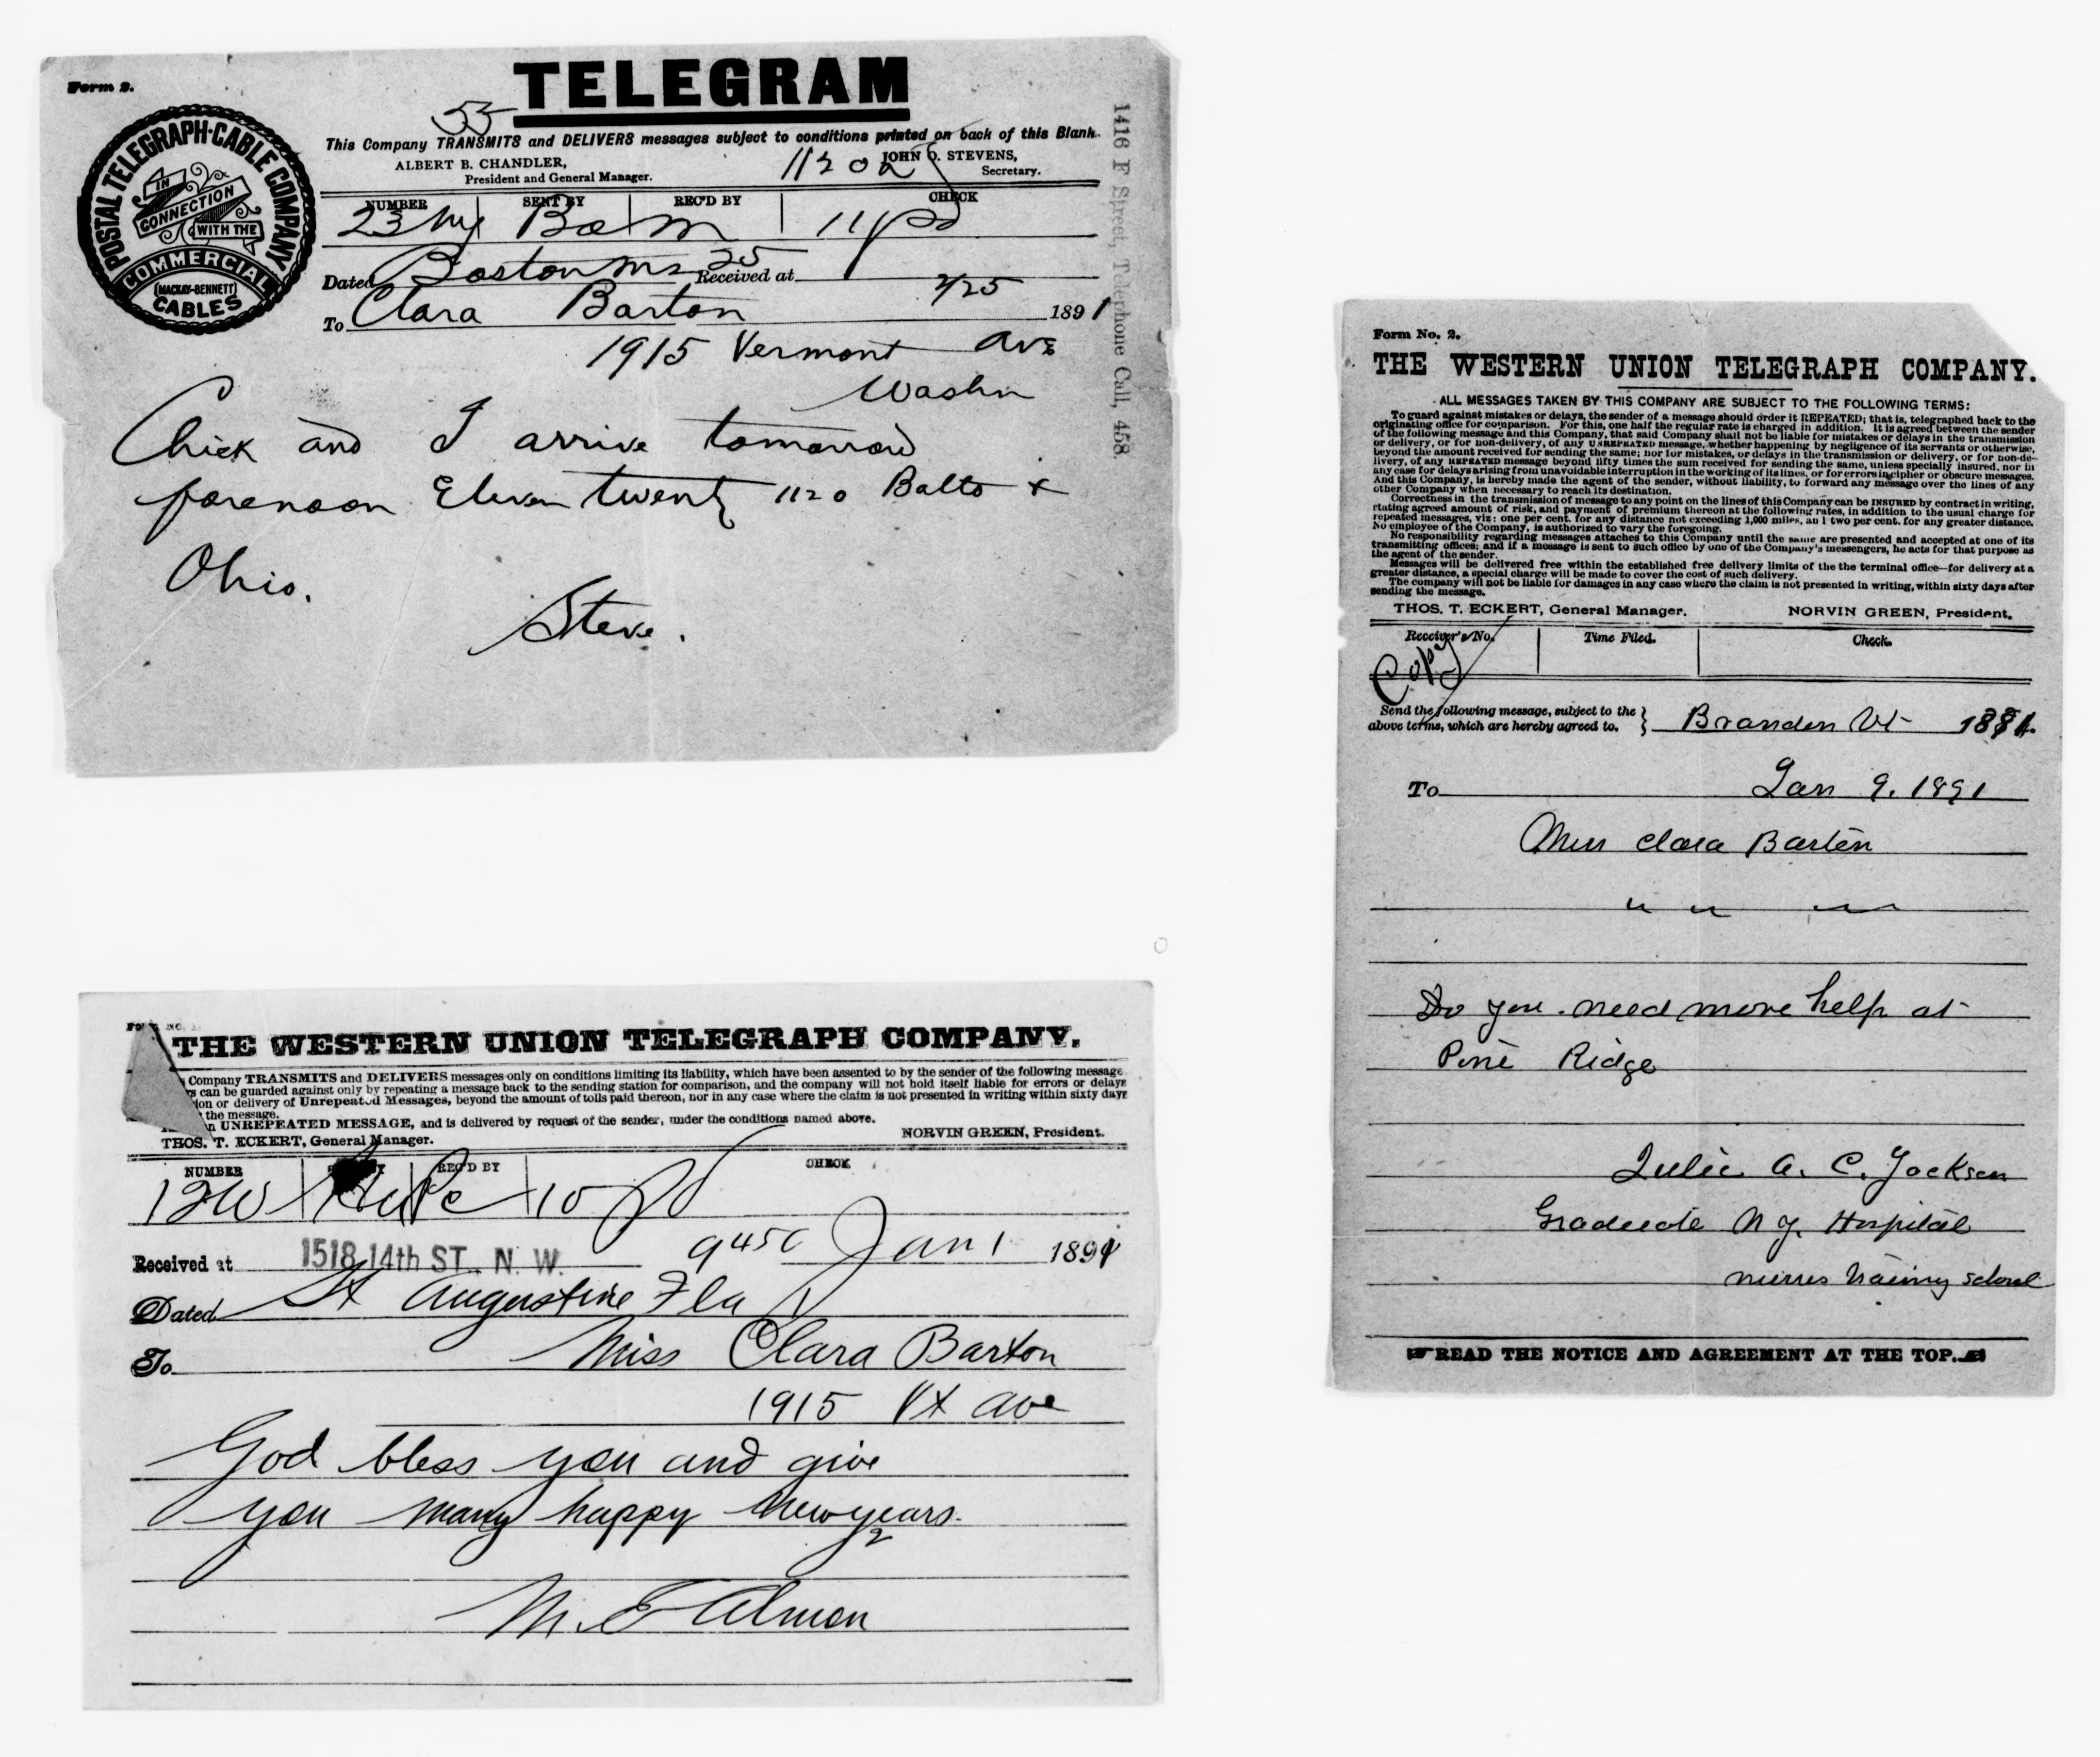 Form 2.
TELEGRAM
53
This Company TRANSMITS and DELIVERS messages subject to conditions printed on back of this Blank.
ALBERT B. CHANDLER,
President and General Manager.
1120a
JOHN O. STEVENS,
Secretary.
POSTAL TELEGRAPH-CABLE COMPANY
IN
CONNECTION
WITH THE
COMMERCIAL
(MACKAY-BENNETT)
CABLES
1416 F Street, Telephone Call, 458.
NUMBER SENT BY REC'D BY CHECK
23 Ny Bo m 11 pd
Dated Boston Ms 25 Received at
To Clara Barton 2/25 1891
1915 Vermont Ave
Washn
Chick and I arrive tomorrow
forenoon Eleven twenty 1120 Balto &
Ohio.
Steve.
THE WESTERN UNION TELEGRAPH COMPANY.
Company TRANSMITS and DELIVERS messages only on conditions limiting its liability, which have been assented to by the sender of the following message
can be guarded against only by repeating a message back to the sending station for comparison, and the company will not hold itself liable for errors or delays
ion or delivery of Unrepeated Messages, beyond the amount of tolls paid thereon, nor in any case where the claim is not presented in writing within sixty days
the message.
UNREPEATED MESSAGE, and is delivered by request of the sender, under the conditions named above.
THOS. T. ECKERT, General Manager. NORVIN GREEN, President.
NUMBER REC'D BY CHECK
12W 10 pd
Received at 1518-14th ST. N. W. 945a Jan 1 1891
Dated St Augustine Fla 1
To Miss Clara Barton
1915 Vt ave
God bless you and give
you many happy New years.
2
M. E Almon
Form No. 2.
THE WESTERN UNION TELEGRAPH COMPANY.
ALL MESSAGES TAKEN BY THIS COMPANY ARE SUBJECT TO THE FOLLOWING TERMS:
To guard against mistakes or delays, the sender of a message should order it REPEATED; that is, telegraphed back to the
originating office for comparison. For this, one half the regular rate is charged in addition. It is agreed between the sender
of the following message and this Company, that said Company shall not be liable for mistakes or delays in the transmission
or delivery, or for non-delivery, of any UNREPEATED message, whether happening by negligence of its servants or otherwise,
beyond the amount received for sending the same; nor for mistakes, or delays in the transmission or delivery, or for non-de-
livery, of any REPEATED message beyond fifty times the sum received for sending the same, unless specially insured, nor in
any case for delays arising from unavoidable interruption in the working of its lines, or for errors in cipher or obscure messages.
And this Company, is hereby made the agent of the sender, without liability, to forward any message over the lines of any
other Company when necessary to reach its destination.
Correctness in the transmission of message to any point on the lines of this Company can be INSURED by contract in writing,
stating agreed amount of risk, and payment of premium thereon at the following rates, in addition to the usual charge for
repeated messages, viz: one per cent. for any distance not exceeding 1,000 miles, and two per cent. for any greater distance.
No employee of the Company, is authorized to vary the foregoing.
No responsibility regarding messages attaches to this Company until the same are presented and accepted at one of its
transmitting offices; and if a message is sent to such office by one of the Company's messengers, he acts for that purpose as
the agent of the sender.
Messages will be delivered free within the established free delivery limits of the the terminal office—for delivery at a
greater distance, a special charge will be made to cover the cost of such delivery.
The company will not be liable for damages in any case where the claim is not presented in writing, within sixty days after
sending the message.
THOS. T. ECKERT, General Manager. NORVIN GREEN, President.
Receiver's No. Time Filed. Check.
Copy
Send the following message, subject to the
above terms, which are hereby agreed to. } Branden Vt 1891.
To Jan 9. 1891
Miss Clara Barton
" " "
Do you need more help at
Pine Ridge
Julie A. C. Jackson
Graduate N Y. Hospital
nurses training school
READ THE NOTICE AND AGREEMENT AT THE TOP.